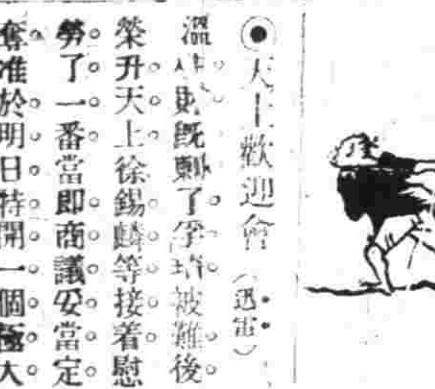 ◉天上歡迎會（迅雷）
溫生財既剿了孚琦被難後。
榮升天上徐錫麟等接着慰
勞了一番當即商議妥當定
奪准於明日特開一個極大